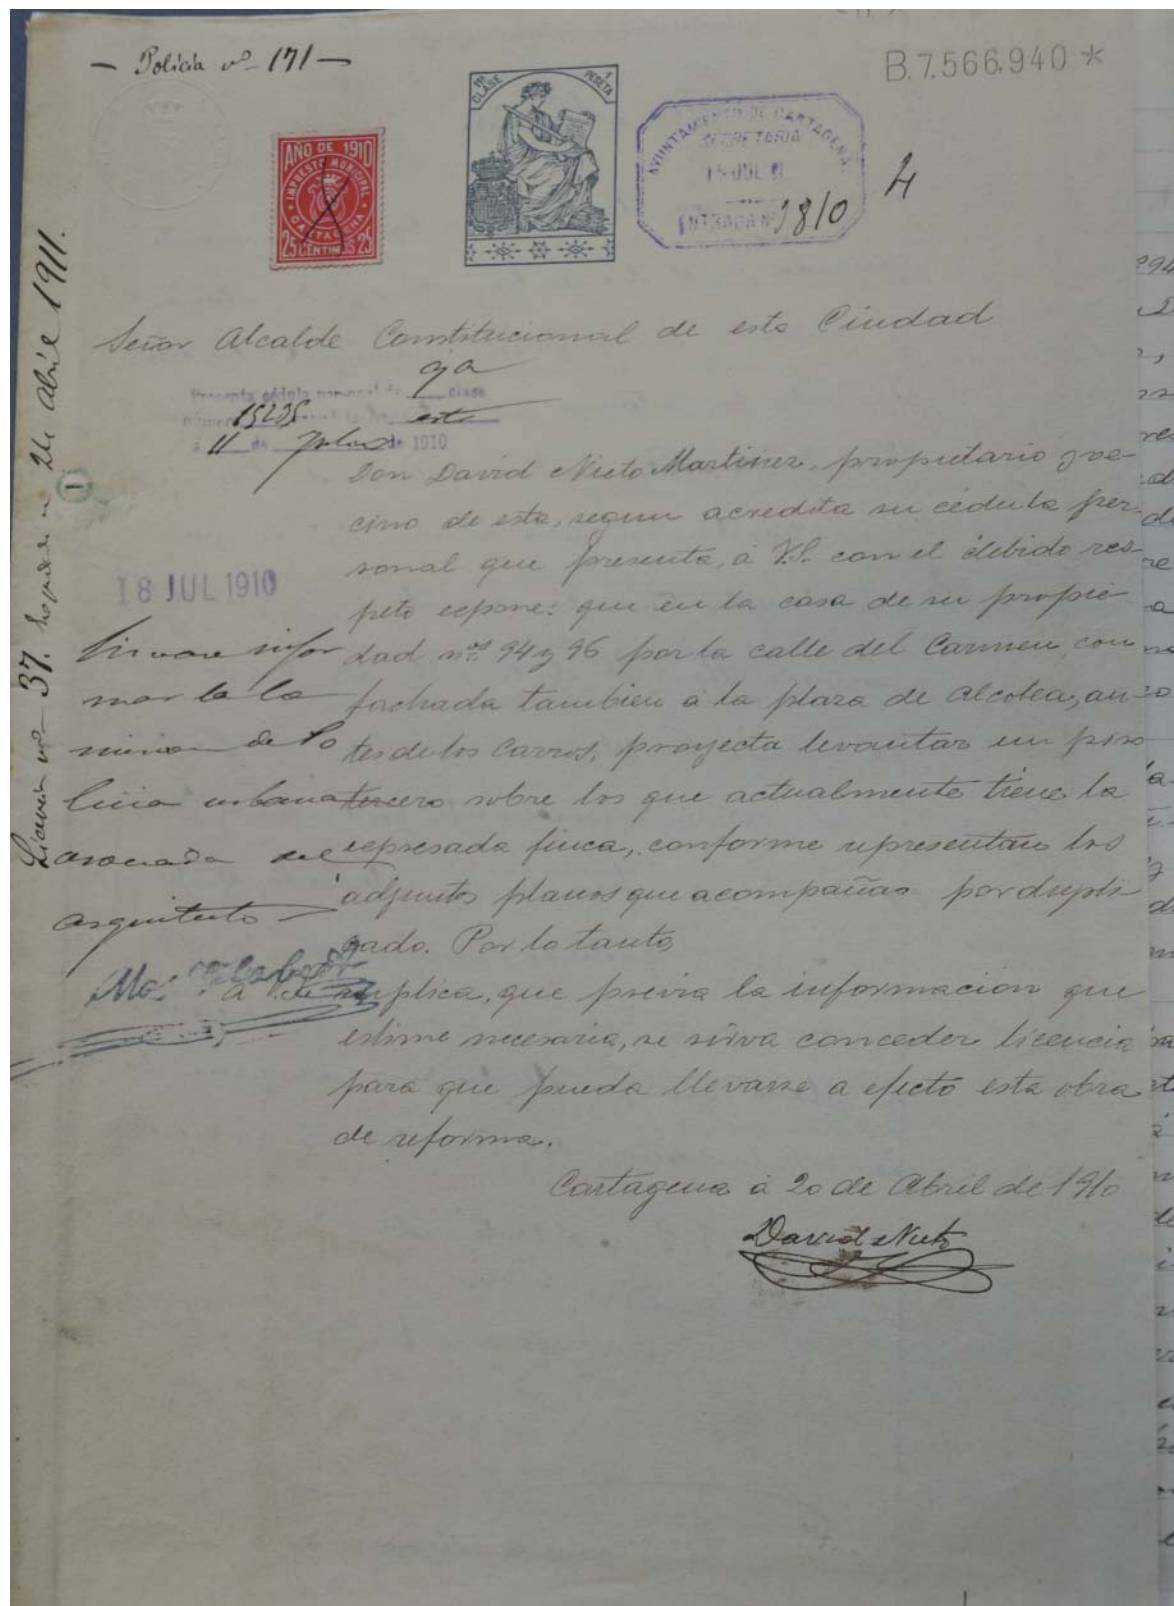 — Policía nº 171 —
B.7.566.940 *
AÑO DE 1910
IMPUESTO MUNICIPAL
CARTAGENA
25 CENTIMOS 25
11ª CLASE
1 PESETA
AYUNTAMIENTO DE CARTAGENA
SECRETARIA
18 JUL
ENTRADA Nº 9810
4
Señor Alcalde Constitucional de esta Ciudad
Presenta cédula personal de 9ª clase
número 15235 esta
á 11 de de 1910
Don David Nieto Martinez, propietario y ve-
cino de esta, segun acredita su cédula per-
sonal que presenta, á V.S. con el debido res-
peto expone: que en la casa de su propie-
dad nos. 94 y 96 por la calle del Carmen, con
fachada tambien á la plaza de Alcolea, an-
tes de los Carros, proyecta levantar un piso
tercero sobre los que actualmente tiene la
expresada finca, conforme representan los
adjuntos planos que acompañas por dupli-
cado. Por lo tanto,
A V.S. suplica, que previa la informacion que
estime necesaria, se sirva conceder licencia
para que pueda llevarse a efecto esta obra
de reforma.
Cartagena á 20 de Abril de 1910
David Nieto
18 JUL 1910
Sirvase infor
mar la Co
mision de Po
licia urbana
asociada del
arquitecto
Licencia nº 37. en 24 Abril 1911.
1